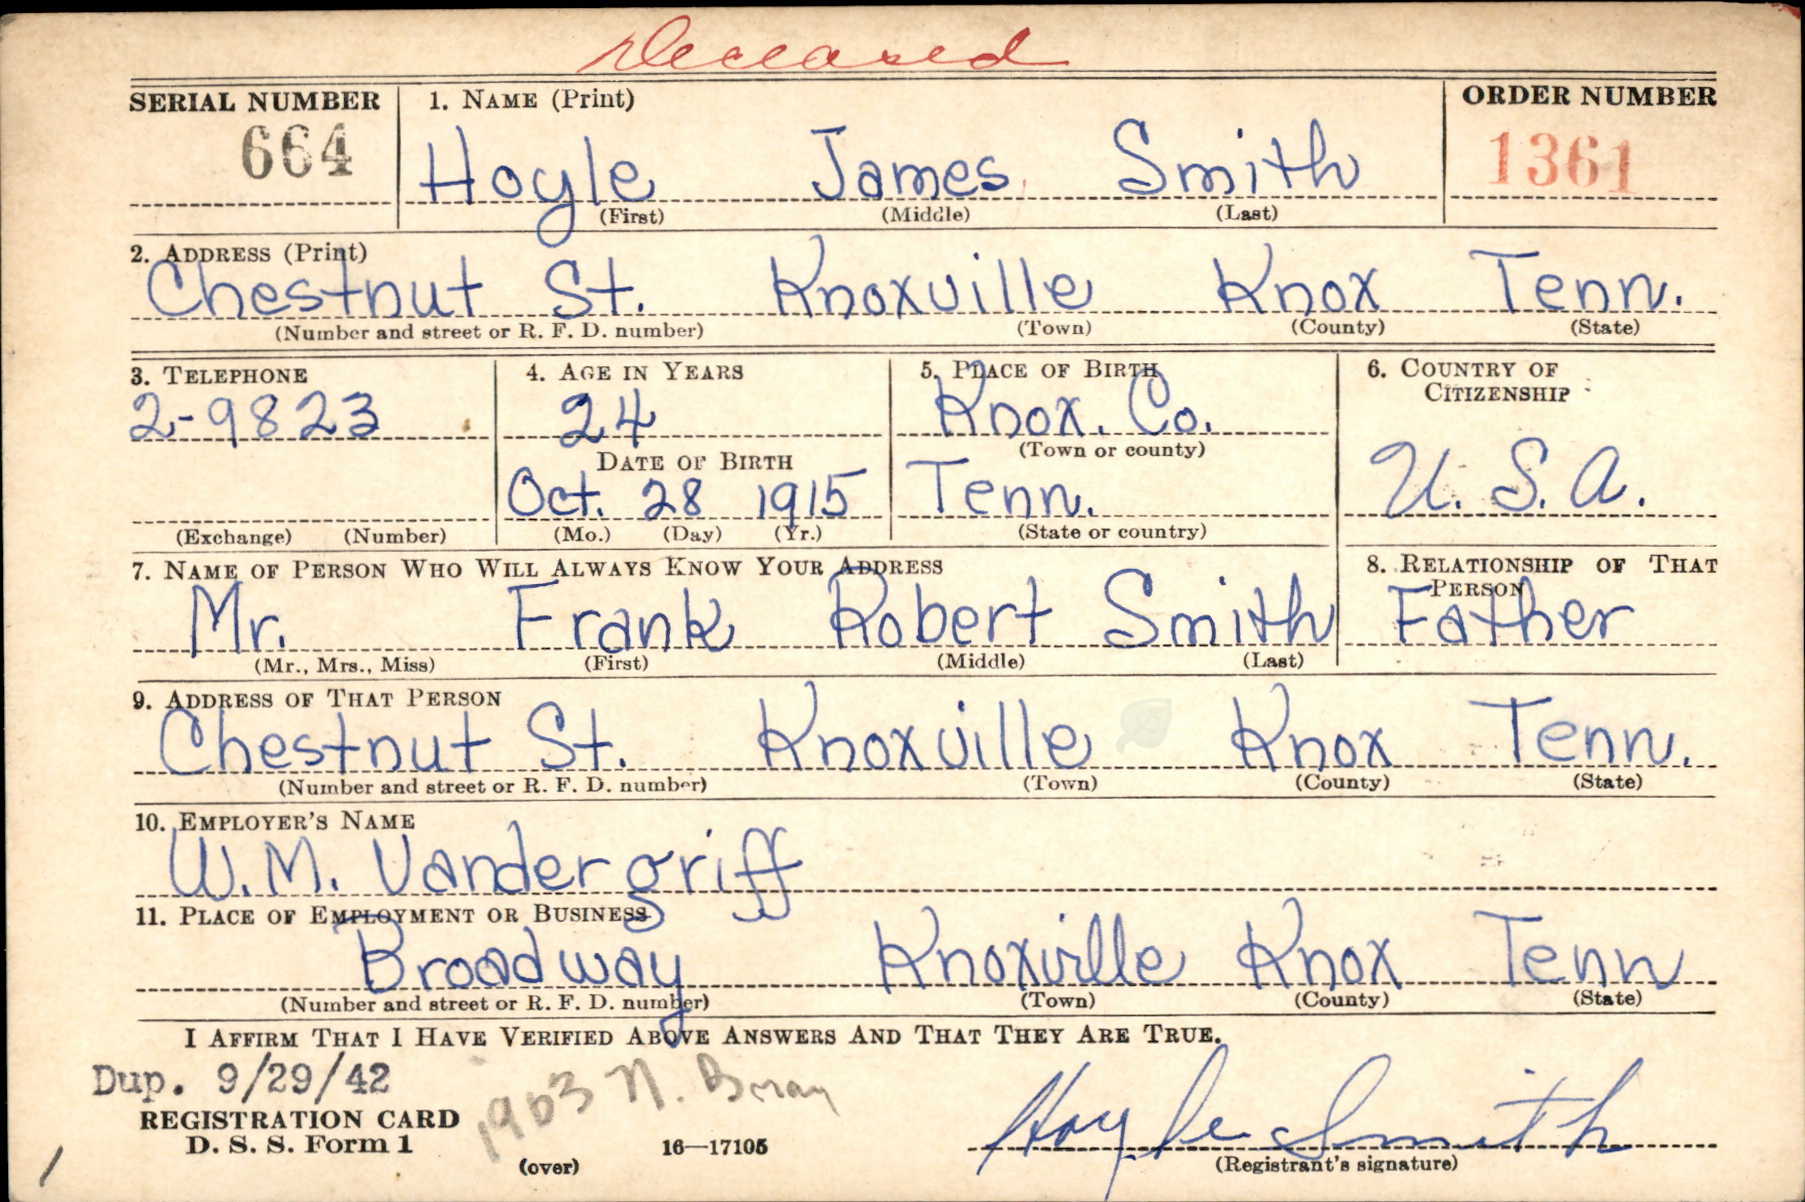 Deceased
SERIAL NUMBER 1. NAME (Print) ORDER NUMBER
664 Hoyle James Smith 1361
(First) (Middle) (Last)
2. ADDRESS (Print)
Chestnut St. Knoxville Knox Tenn.
(Number and street or R. F. D. number) (Town) (County) (State)
3. TELEPHONE 4. AGE IN YEARS 5. PLACE OF BIRTH 6. COUNTRY OF
CITIZENSHIP
2-9823 24 Knox. Co.
(Town or county)
DATE OF BIRTH
Oct. 28 1915 Tenn. U. S. A.
(Exchange) (Number) (Mo.) (Day) (Yr.) (State or country)
7. NAME OF PERSON WHO WILL ALWAYS KNOW YOUR ADDRESS 8. RELATIONSHIP OF THAT
PERSON
Mr. Frank Robert Smith Father
(Mr., Mrs., Miss) (First) (Middle) (Last)
9. ADDRESS OF THAT PERSON
Chestnut St. Knoxville Knox Tenn.
(Number and street or R. F. D. number) (Town) (County) (State)
10. EMPLOYER'S NAME
W. M. Vandergriff
11. PLACE OF EMPLOYMENT OR BUSINESS
Broadway Knoxville Knox Tenn
(Number and street or R. F. D. number) (Town) (County) (State)
I AFFIRM THAT I HAVE VERIFIED ABOVE ANSWERS AND THAT THEY ARE TRUE.
Dup. 9/29/42
1903 N.
REGISTRATION CARD
D. S. S. Form 1 16—17105 Hoyle Smith
(over) (Registrant's signature)